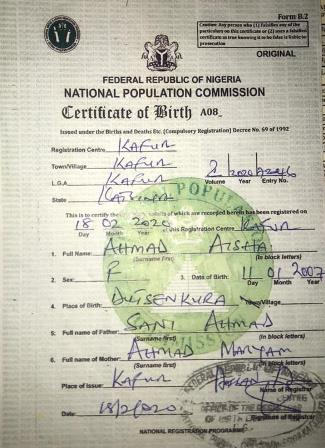 Form B.2
Caution: Any person who (1) falsifies any of the
particulars on this certificate or (2) uses a falsified
certificate as true knowing it to be false is liable to
prosecution
ORIGINAL
FEDERAL REPUBLIC OF NIGERIA
NATIONAL POPULATION COMMISSION
Certificate of Birth A08
Issued under the Births and Deaths Etc. (Compulsory Registration) Decree No. 69 of 1992
Registration Centre KAFUR
Town/Village KAFUR
L.G.A KAFUR 2 2020
Volume Year Entry No.
State KATSINA
This is to certify the of which are recorded herein has been registered on
18 02 2020 at this Registration Centre KAFUR
Day Month Year
1. Full Name: AHMAD AISHA
(Surname first) (In block letters)
2. Sex: F 3. Date of Birth: 11 01 2007
Day Month Year
4. Place of Birth: DUTSENKURA Town/Village
5. Full name of Father: SANI AHMAD
(Surname first) (In block letters)
6. Full name of Mother: AHMAD MARYAM
(Surname first) (In block letters)
Place of Issue: KAFUR
Name of Registrar
Date: 18/2/2020
Signature of Registrar
NATIONAL REGISTRATION PROGRAMME